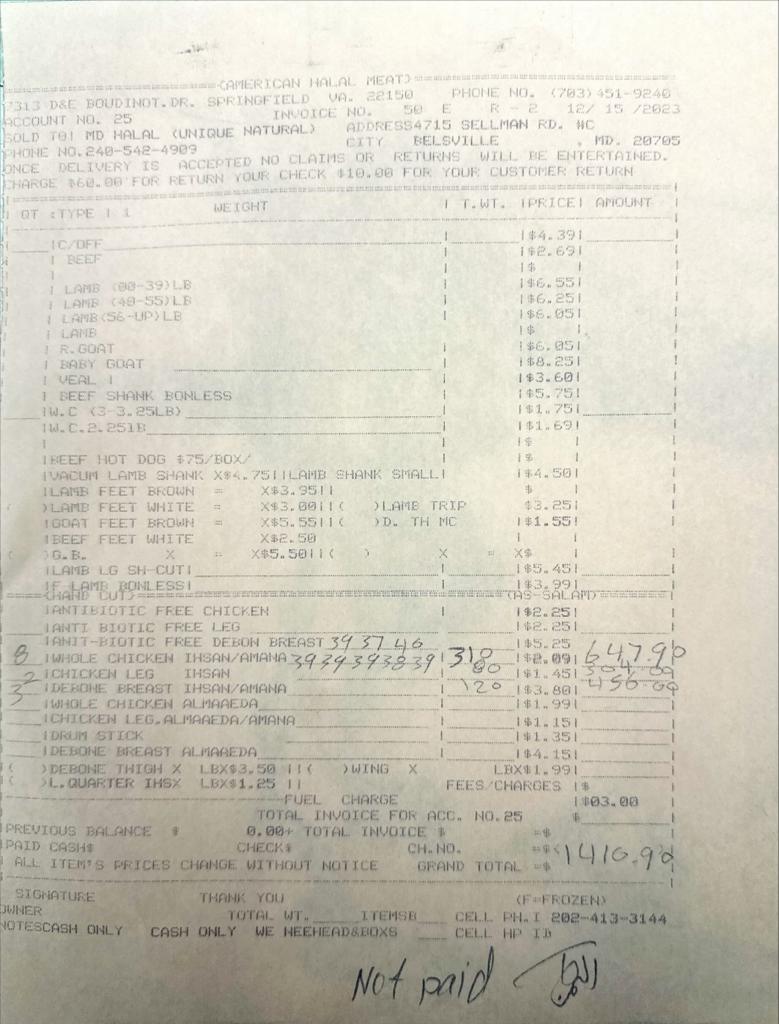 (AMERICAN HALAL MEAT)
7313 D&E BOUDINOT.DR. SPRINGFIELD VA. 22150 PHONE NO. (703)451-9240
ACCOUNT NO. 25 INVOICE NO. 50 E R - 2 12/ 15 /2023
SOLD TO! MD HALAL (UNIQUE NATURAL) ADDRESS4715 SELLMAN RD. #C
PHONE NO.240-542-4909 CITY BELSVILLE , MD. 20705
ONCE DELIVERY IS ACCEPTED NO CLAIMS OR RETURNS WILL BE ENTERTAINED.
CHARGE $60.00 FOR RETURN YOUR CHECK $10.00 FOR YOUR CUSTOMER RETURN
QT :TYPE WEIGHT T.WT. PRICE AMOUNT
C/OFF $4.39
BEEF $2.69
$
LAMB (00-39)LB $6.55
LAMB (40-55)LB $6.25
LAMB(56-UP)LB $6.05
LAMB $
R.GOAT $6.05
BABY GOAT $8.25
VEAL $3.60
BEEF SHANK BONLESS $5.75
W.C (3-3.25LB) $1.75
W.C.2.25lB $1.69
$
BEEF HOT DOG $75/BOX/ $
VACUM LAMB SHANK X$4.75 LAMB SHANK SMALL $4.50
LAMB FEET BROWN = X$3.95 $
( )LAMB FEET WHITE = X$3.00 ( )LAMB TRIP $3.25
GOAT FEET BROWN = X$5.55 ( )D. TH MC $1.55
BEEF FEET WHITE X$2.50
( )G.B. X = X$5.50 ( ) X = X$
LAMB LG SH-CUT $5.45
F LAMB BONLESS $3.99
(HAND CUT) (AS-SALAM)
ANTIBIOTIC FREE CHICKEN $2.25
ANTI BIOTIC FREE LEG $2.25
ANIT-BIOTIC FREE DEBON BREAST 39 37 40 $5.25
8 WHOLE CHICKEN IHSAN/AMANA 39 39 39 38 39 310 $2.09 647.90
2 CHICKEN LEG IHSAN 80 $1.45
3 DEBONE BREAST IHSAN/AMANA 120 $3.80 456.00
WHOLE CHICKEN ALMAAEDA $1.99
CHICKEN LEG.ALMAAEDA/AMANA $1.15
DRUM STICK $1.35
DEBONE BREAST ALMAAEDA $4.15
( )DEBONE THIGH X LBX$3.50 ( )WING X LBX$1.99
( )L.QUARTER IHSX LBX$1.25 FEES/CHARGES $
FUEL CHARGE $03.00
TOTAL INVOICE FOR ACC. NO.25 $
PREVIOUS BALANCE $ 0.00+ TOTAL INVOICE $ =$
PAID CASH$ CHECK$ CH.NO. =$<
ALL ITEM'S PRICES CHANGE WITHOUT NOTICE GRAND TOTAL =$ 1410.90
SIGNATURE THANK YOU (F=FROZEN)
OWNER TOTAL WT. ITEMSB CELL PH.I 202-413-3144
NOTESCASH ONLY CASH ONLY WE NEEHEAD&BOXS CELL HP ID
Not paid